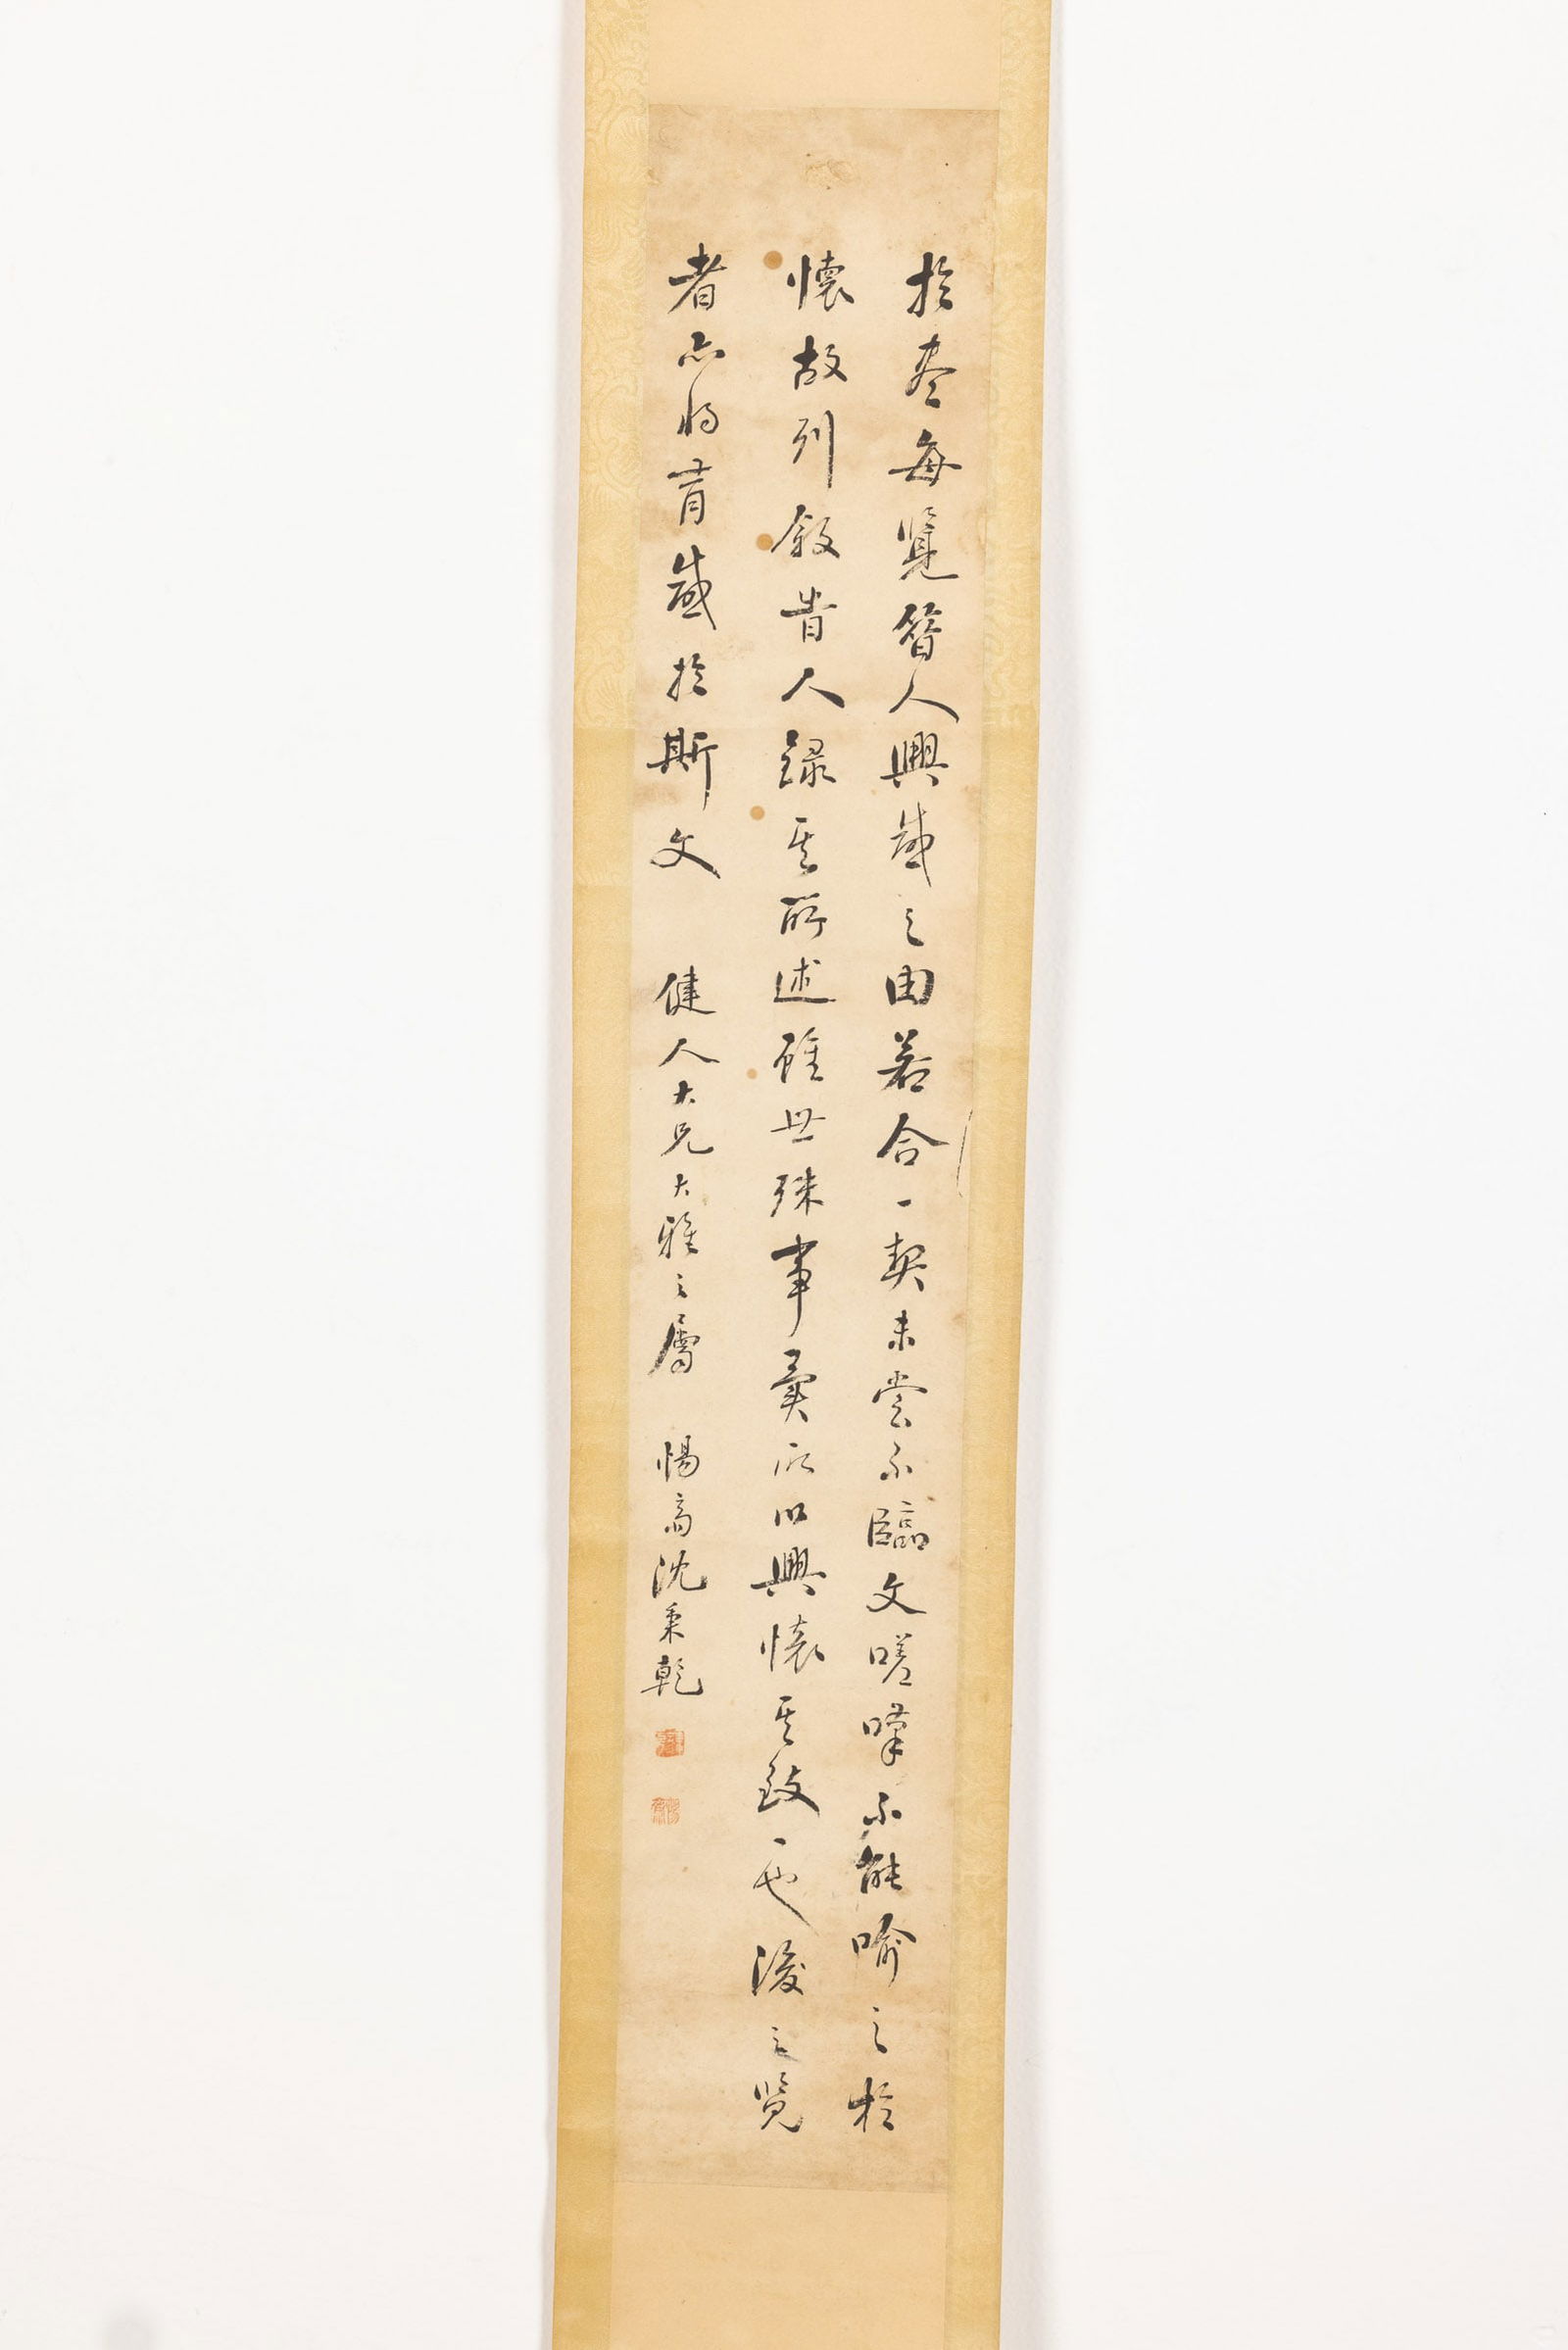 於盡每覽昝人興感之由若合一契未嘗不臨文嗟嘆不能喻之於
懷故列敘昔人錄其所述雖世殊事異所以興懷其致一也後之覽
者亦將有感於斯文 健人大兄大雅之屬 惕齋沈秉乾